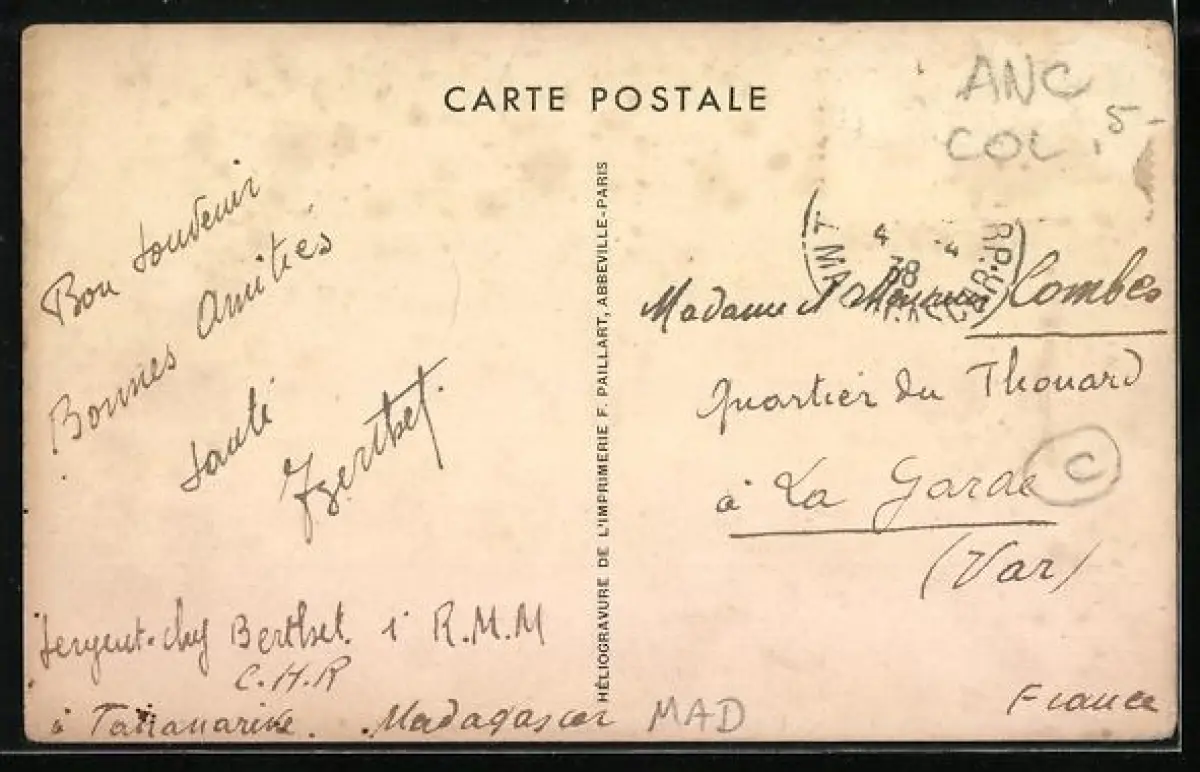 CARTE POSTALE
ANC
COL 5-
Bon souvenir
Amitiés
Bonnes
santé
Berthet.
Sergent-chef Berthet. 1 R.M.M
C.H.R
à Tananarive. Madagascar MAD
HÉLIOGRAVURE DE L'IMPRIMERIE F. PAILLART, ABBEVILLE-PARIS
4 -4
38
Madame & Monsieur Combes
Quartier du Thouard
à La Garde
C
(Var)
France